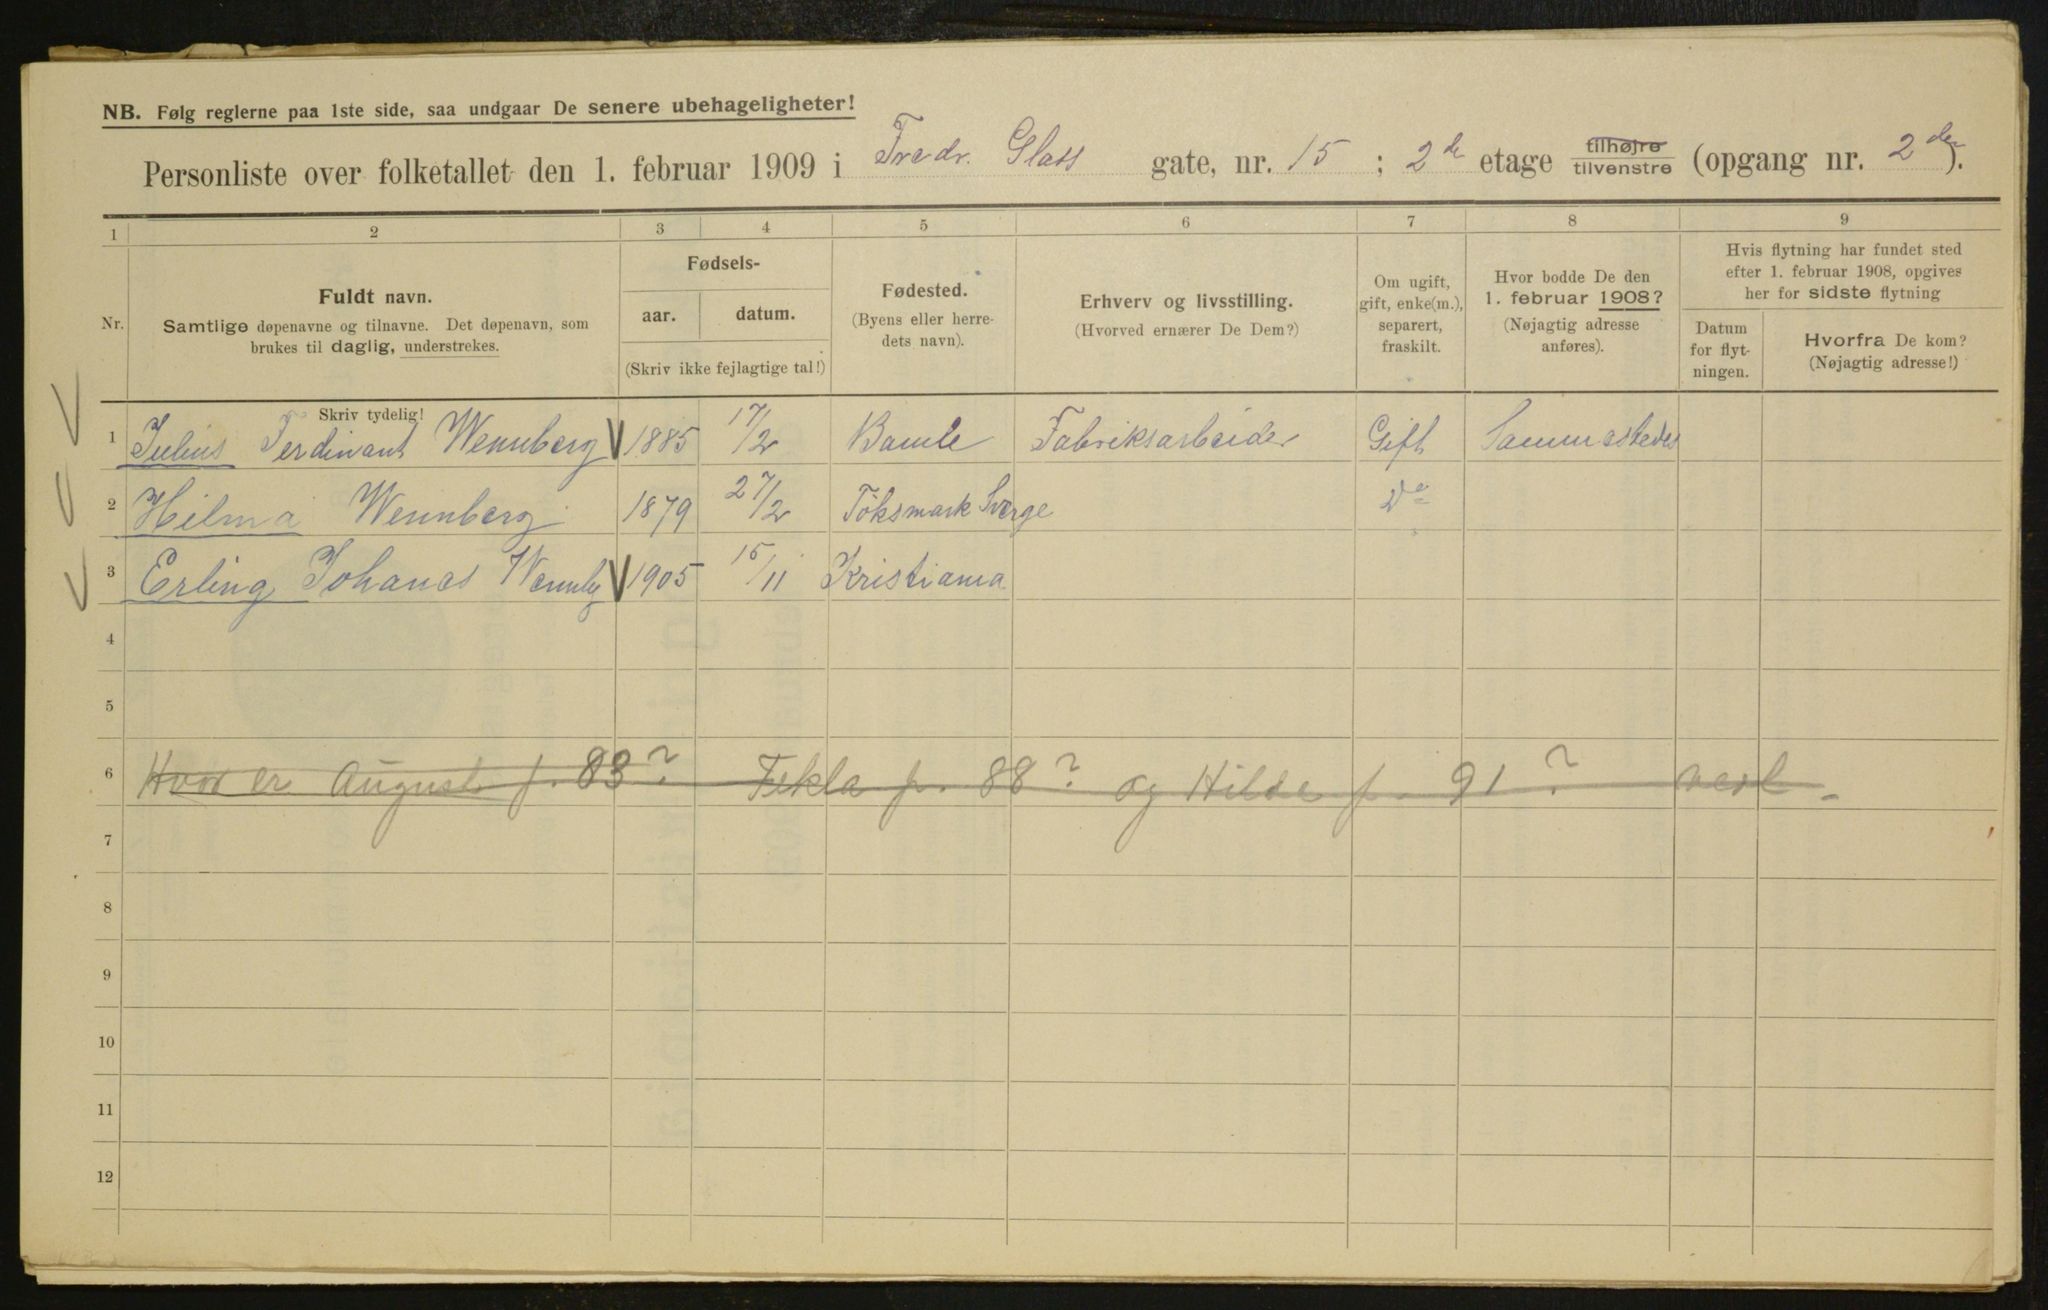 NB. Følg reglerne paa 1ste side, saa undgaar De senere ubehageligheter!
Personliste over folketallet den 1. februar 1909 i Fredr. Glass gate, nr. 15 ; 2de etage tilhøjre tilvenstre (opgang nr. 2den).
1 2 3 4 5 6 7 8 9
Nr.
Fuldt navn.
Samtlige døpenavne og tilnavne. Det døpenavn, som
brukes til daglig, understrekes.
Fødsels-
aar. datum.
(Skriv ikke fejlagtige tal!)
Fødested.
(Byens eller herre-
dets navn).
Erhverv og livsstilling.
(Hvorved ernærer De Dem?)
Om ugift,
gift, enke(m.),
separert,
fraskilt.
Hvor bodde De den
1. februar 1908?
(Nøjagtig adresse
anføres).
Hvis flytning har fundet sted
efter 1. februar 1908, opgives
her for sidste flytning
Datum
for flyt-
ningen.
Hvorfra De kom?
(Nøjagtig adresse!)
Skriv tydelig!
1 Julius Ferdinant Wennberg 1885 17/2 Bamle Fabriksarbeider Gift Sammestedes
2 Hilma Wennberg 1879 27/2 Töksmark Sverge Do
3 Erling Johanes Wennbg 1905 15/11 Kristiania
4
5
6 Hvor er August f. 83? Tekla f. 88? og Hilda f. 91?
7
8
9
10
11
12